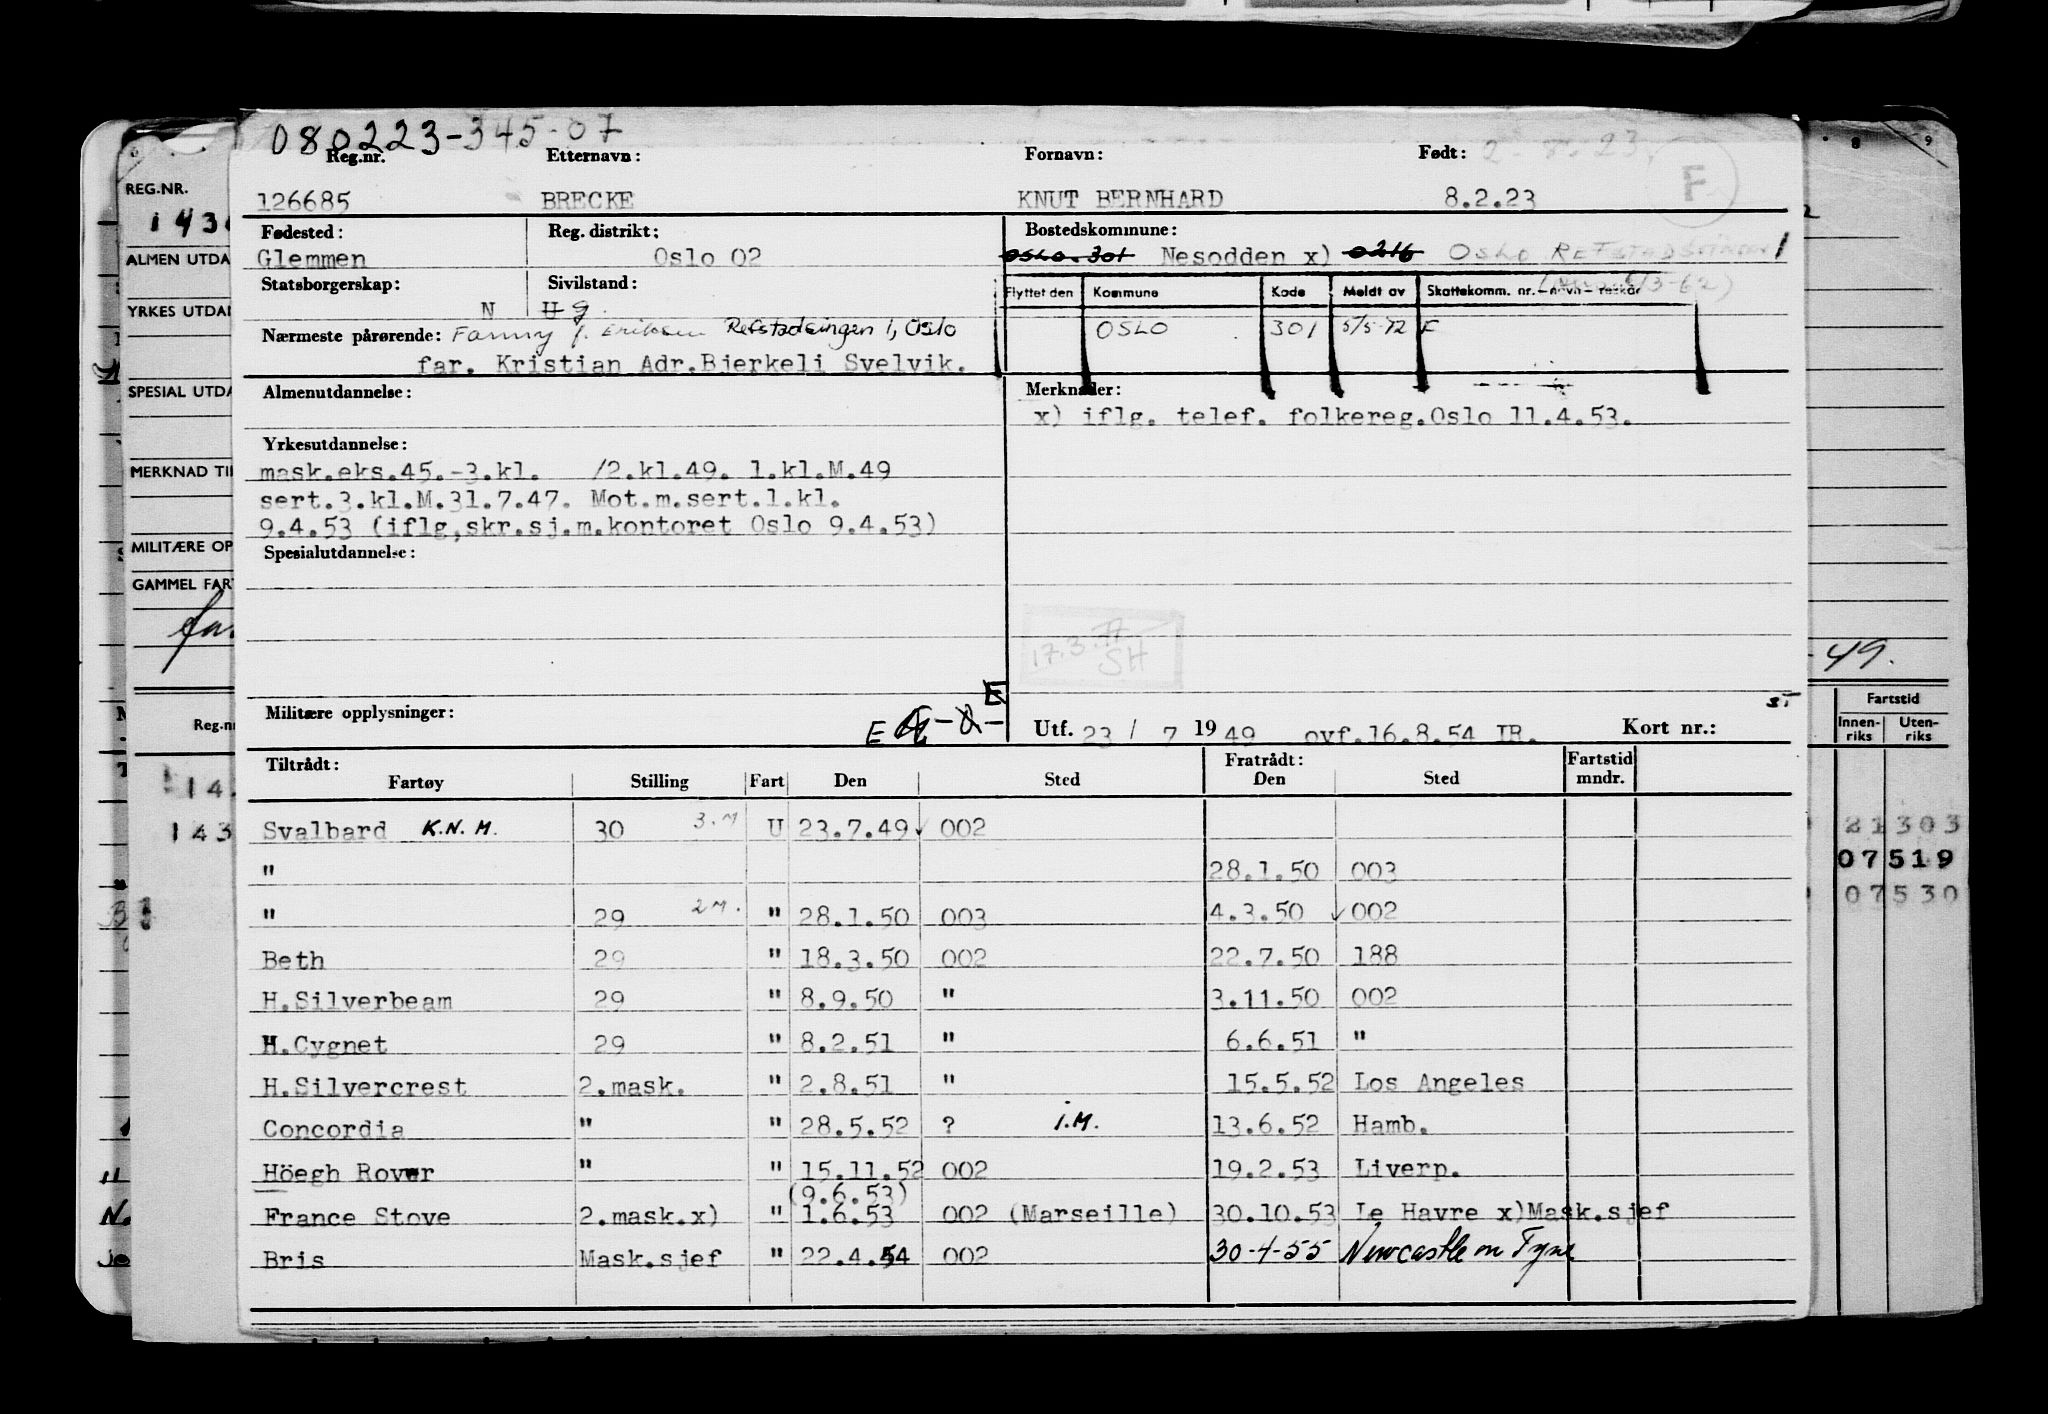 080223-345-07
Reg.nr. Etternavn: Fornavn: Født:
126685 BRECKE KNUT BERNHARD 8.2.23 F
Fødested: Reg. distrikt: Bostedskommune:
Glemmen Oslo 02 OSLO 301 Nesodden x) 0216 OSLO 1
Statsborgerskap: Sivilstand:
N U g.
Flyttet den Kommune Kode Meldt av Skattekomm. nr. – navn –
OSLO 301 5/5-72 F
Nærmeste pårørende: Fanny f. Eriksen Refstadsvingen 1, Oslo
far. Kristian Adr.Bjerkeli Svelvik.
Almenutdannelse:
Merknader:
x) iflg. telef. folkereg.Oslo 11.4.53.
Yrkesutdannelse:
mask.eks.45.-3.kl. /2.kl.49. 1.kl.M.49
sert.3.kl.M.31.7.47. Mot.m.sert.1.kl.
9.4.53 (iflg,skr.sj.m.kontoret Oslo 9.4.53)
Spesialutdannelse:
17.3.77
SH
Militære opplysninger: E
Utf. 23 / 7 19 49 ovf.16.8.54 IR. Kort nr.:
Tiltrådt: Fratrådt: Fartstid
Fartøy Stilling Fart Den Sted Den Sted mndr.
Svalbard K.N.M. 30 3.M U 23.7.49 002
" 28.1.50 003
" 29 2M. " 28.1.50 003 4.3.50 002
Beth 29 " 18.3.50 002 22.7.50 188
H.Silverbeam 29 " 8.9.50 " 3.11.50 002
H.Cygnet 29 " 8.2.51 " 6.6.51 "
H.Silvercrest 2.mask. " 2.8.51 " 15.5.52 Los Angeles
Concordia " " 28.5.52 ? i.M. 13.6.52 Hamb.
Höegh Rover " " 15.11.52 002 19.2.53 Liverp.
(9.6.53)
France Stove 2.mask.x) " 1.6.53 002 (Marseille) 30.10.53 Le Havre x)Mask.sjef
Bris Mask.sjef " 22.4.54 002 30-4-55 Newcastle on Tyne
REG.NR.
143
ALMEN UTDA
YRKES UTDAN
SPESIAL UTDA
MERKNAD TIL
MILITÆRE OP
GAMMEL FART
Reg.nr
14
143
49.
Fartstid
Innen-riks Uten-riks
21303
07519
07530